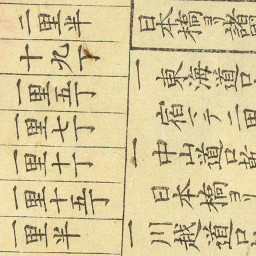 二里半
十九丁
一里五丁
一里七丁
一里十丁
一里十五丁
一里半
日本橋ヨリ諸
一東海道口
宿マテ二里
一中山道口
日本橋ヨリ
一川越道口